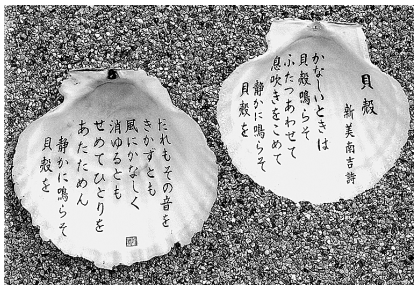 貝殻
新美南吉詩
かなしいときは
貝殻鳴らそ
ふたつあわせて
息吹きをこめて
静かに鳴らそ
貝殻を
だれもその音を
きかずとも
風にかなしく
消ゆるとも
せめてひとりを
あたためん
静かに鳴らそ
貝殻を